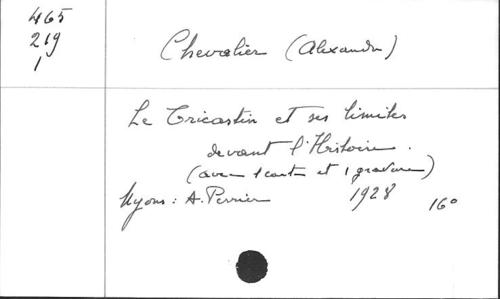 465
219
1
Chevalier (Alexandre)
Le Tricastin et ses limites
devant l'Histoire.
(avec 1 carte et 1 gravure)
Nyons : A. Perrier 1928 16°